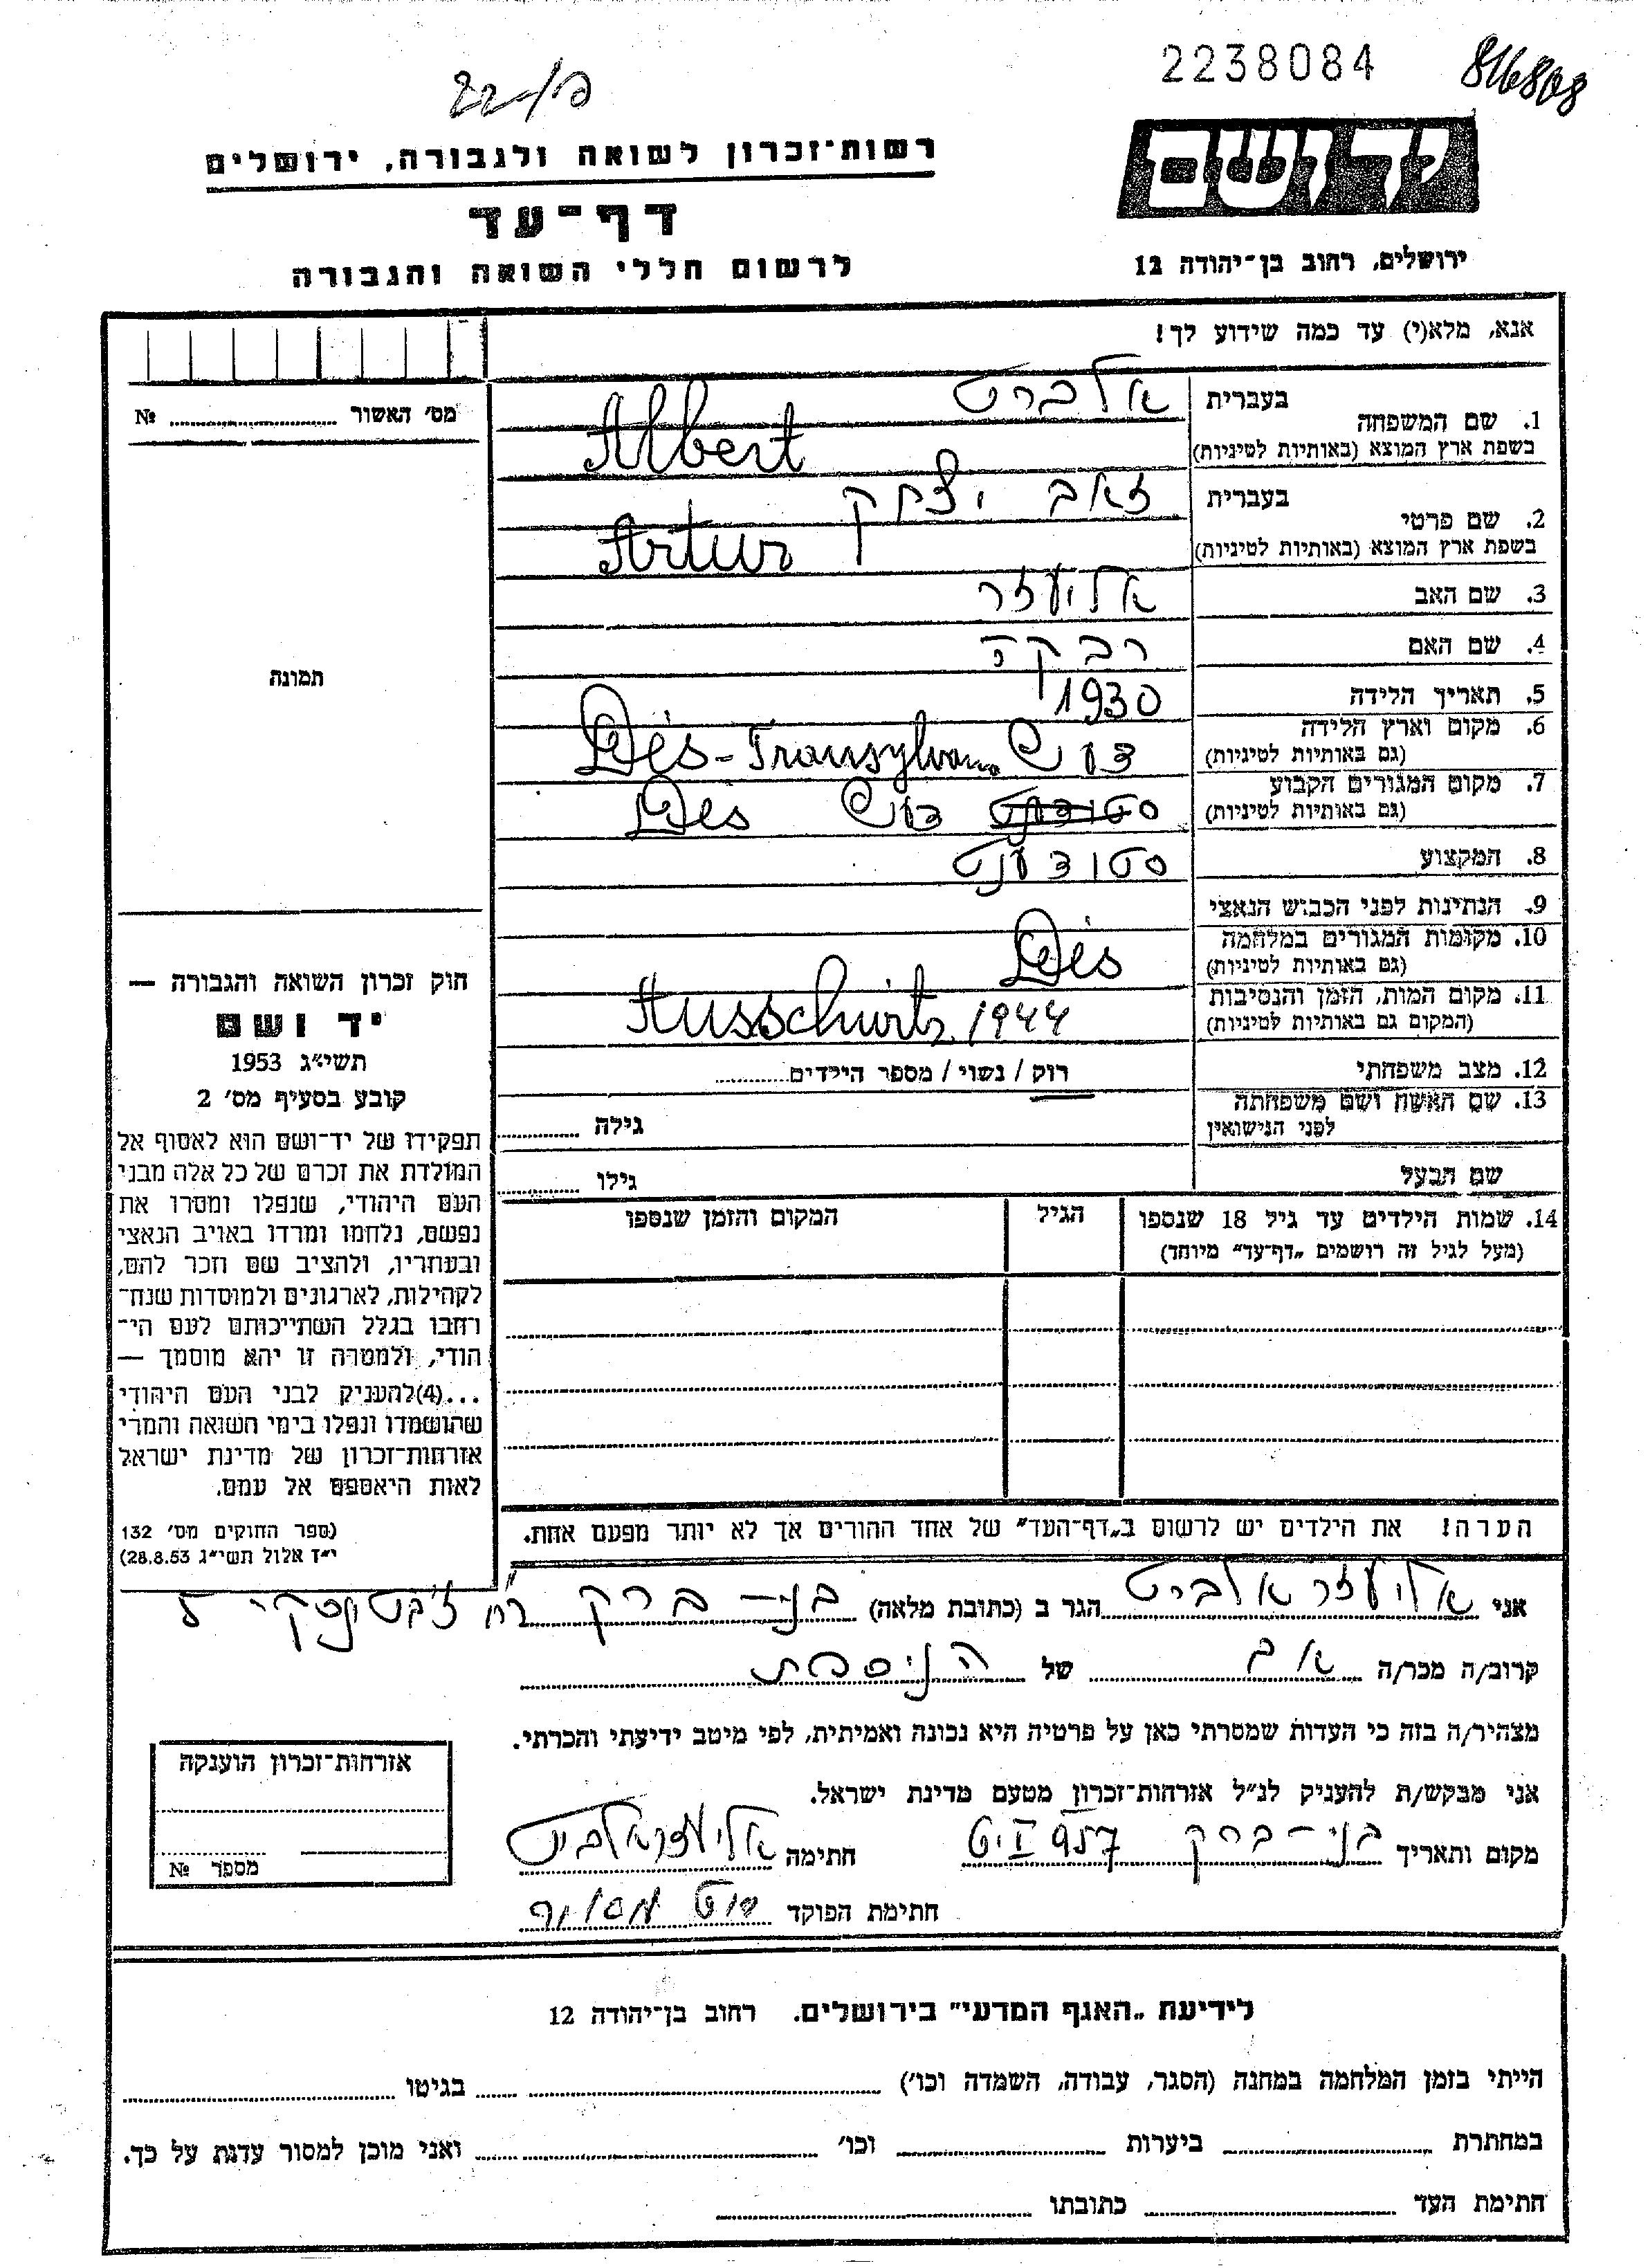 2238084
816808
רשות־זכרון לשואה ולגבורה, ירושלים
דף־עד
לרשום חללי השואה והגבורה
יד ושם
ירושלים, רחוב בן־יהודה 12
אנא, מלא(י) עד כמה שידוע לך!
מס׳ האשור № ....................
תמונה
1. שם המשפחה בעברית אלברט
בשפת ארץ המוצא (באותיות לטיניות) Albert
2. שם פרטי בעברית זאב יצחק
בשפת ארץ המוצא (באותיות לטיניות) Artur
3. שם האב אליעזר
4. שם האם רבקה
5. תאריך הלידה 1930
6. מקום וארץ הלידה דעש Dés-Transylvan.
(גם באותיות לטיניות)
7. מקום המגורים הקבוע סטודענט דעש Dés
(גם באותיות לטיניות)
8. המקצוע סטודענט
9. הנתינות לפני הכבוש הנאצי
10. מקומות המגורים במלחמה Dés
(גם באותיות לטיניות)
11. מקום המות, הזמן והנסיבות Ausschwitz 1944
(המקום גם באותיות לטיניות)
12. מצב משפחתי רוק / נשוי / מספר הילדים..........
13. שם האשה ושם משפחתה
לפני הנישואין גילה ..........
שם הבעל גילו ..........
14. שמות הילדים עד גיל 18 שנספו
(מעל לגיל זה רושמים „דף־עד״ מיוחד)
הגיל
המקום והזמן שנספו
הערה! את הילדים יש לרשום ב„דף־העד״ של אחד ההורים אך לא יותר מפעם אחת.
חוק זכרון השואה והגבורה —
יד ושם
תשי״ג 1953
קובע בסעיף מס׳ 2
תפקידו של יד־ושם הוא לאסוף אל
המולדת את זכרם של כל אלה מבני
העם היהודי, שנפלו ומסרו את
נפשם, נלחמו ומרדו באויב הנאצי
ובעוזריו, ולהציב שם וזכר להם,
לקהילות, לארגונים ולמוסדות שנח־
רחבו בגלל השתייכותם לעם הי־
הודי, ולמטרה זו יהא מוסמך —
...(4)להעניק לבני העם היהודי
שהושמדו ונפלו בימי השואה והמרי
אזרחות־זכרון של מדינת ישראל
לאות היאספם אל עמם.
(ספר החוקים מס׳ 132
י״ז אלול תשי״ג 28.8.53)
אני אליעזר אלברט הגר ב (כתובת מלאה) בני-ברק רח׳ ז׳בוטינסקי 5
קרוב/ה מכר/ה אב של הניספה
מצהיר/ה בזה כי העדות שמסרתי כאן על פרטיה היא נכונה ואמיתית, לפי מיטב ידיעתי והכרתי.
אני מבקש/ת להעניק לנ״ל אזרחות־זכרון מטעם מדינת ישראל.
מקום ותאריך בני-ברק חתימה אליעזר אלברט
חתימת הפוקד
אזרחות־זכרון הוענקה
מספר №
לידיעת „האגף המדעי״ בירושלים. רחוב בן־יהודה 12
הייתי בזמן המלחמה במחנה (הסגר, עבודה, השמדה וכו׳) .................... בגיטו ....................
במחתרת .................... ביערות .................... וכו׳ .................... ואני מוכן למסור עדות על כך.
חתימת העד .................... כתובתו ....................